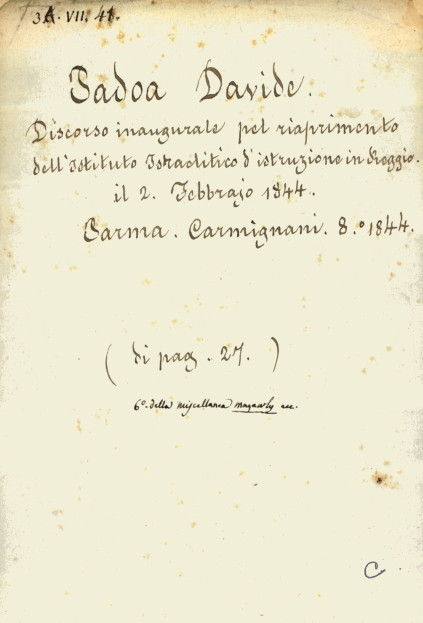 3A. VII. 41.
Padoa Davide.
Discorso inaugurale pel riaprimento
dell'Istituto Israelitico d'istruzione in Reggio.
il 2. Febbrajo 1844.
Parma. Carmignani. 8.° 1844.
(di pag. 27.)
6°. della miscellanea Magawly ecc.
C